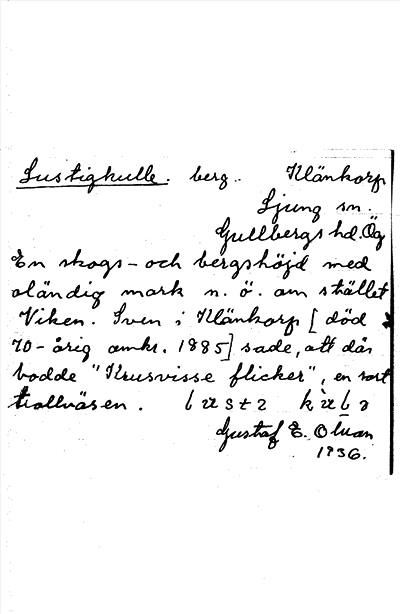 Lustigkulle. berg.. Klänkorp
Ljung sn.
Gullbergs hd. Ög
En skogs- och bergshöjd med
oländig mark n. ö. om stället
Viken. Sven i Klänkorp [död
70-årig omkr. 1885] sade, att där
bodde "Krusvisse flicker", en sort
trollväsen.
Gustaf E. Olsson
1936.